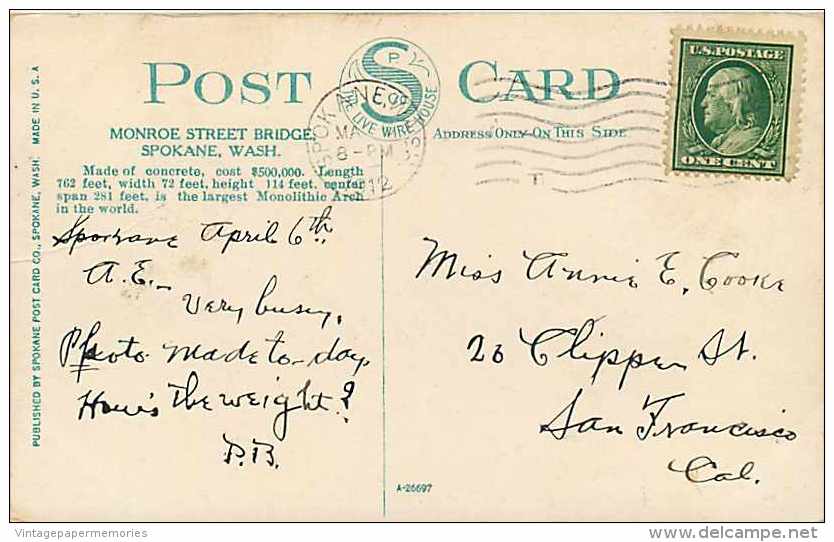 POST CARD
S
P
THE LIVE WIRE HOUSE
MONROE STREET BRIDGE,
SPOKANE, WASH.
Made of concrete, cost $500,000. Length
762 feet, width 72 feet, height 114 feet, center
span 281 feet, is the largest Monolithic Arch
in the world.
ADDRESS ONLY ON THIS SIDE
SPOKANE,
MA
8-PM
12
U.S. POSTAGE
ONE CENT
Spokane April 6th
A.E.—
Very busy,
Photo made to-day
How's the weight?
P.B.
Miss Annie E. Cooke
26 Clipper St.
San Francisco
Cal.
PUBLISHED BY SPOKANE POST CARD CO., SPOKANE, WASH. MADE IN U. S. A
A-26697
Vintagepapermemories
delcampe.net